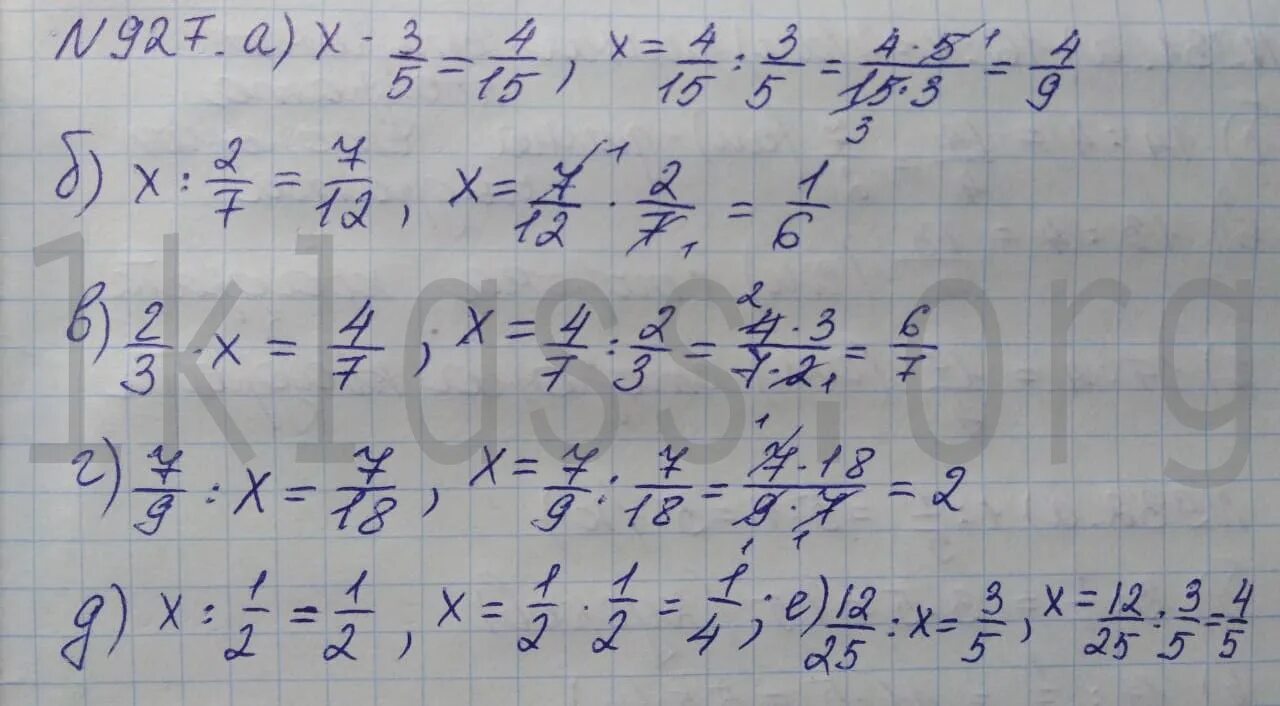 N 927. а) x · 3/5 = 4/15, x = 4/15 : 3/5 = 4·5 1/15·3 3 = 4/9
б) x : 2/7 = 7/12, x = 7 1/12 · 2/7 1 = 1/6
в) 2/3 · x = 4/7, x = 4/7 : 2/3 = 2 4·3/7·2 1 = 6/7
г) 7/9 : x = 7/18, x = 7/9 : 7/18 = 1 7·18/9·7 1 1 = 2
д) x : 1/2 = 1/2, x = 1/2 · 1/2 = 1/4; е) 12/25 : x = 3/5, x = 12/25 : 3/5 = 4/5
1klass.org